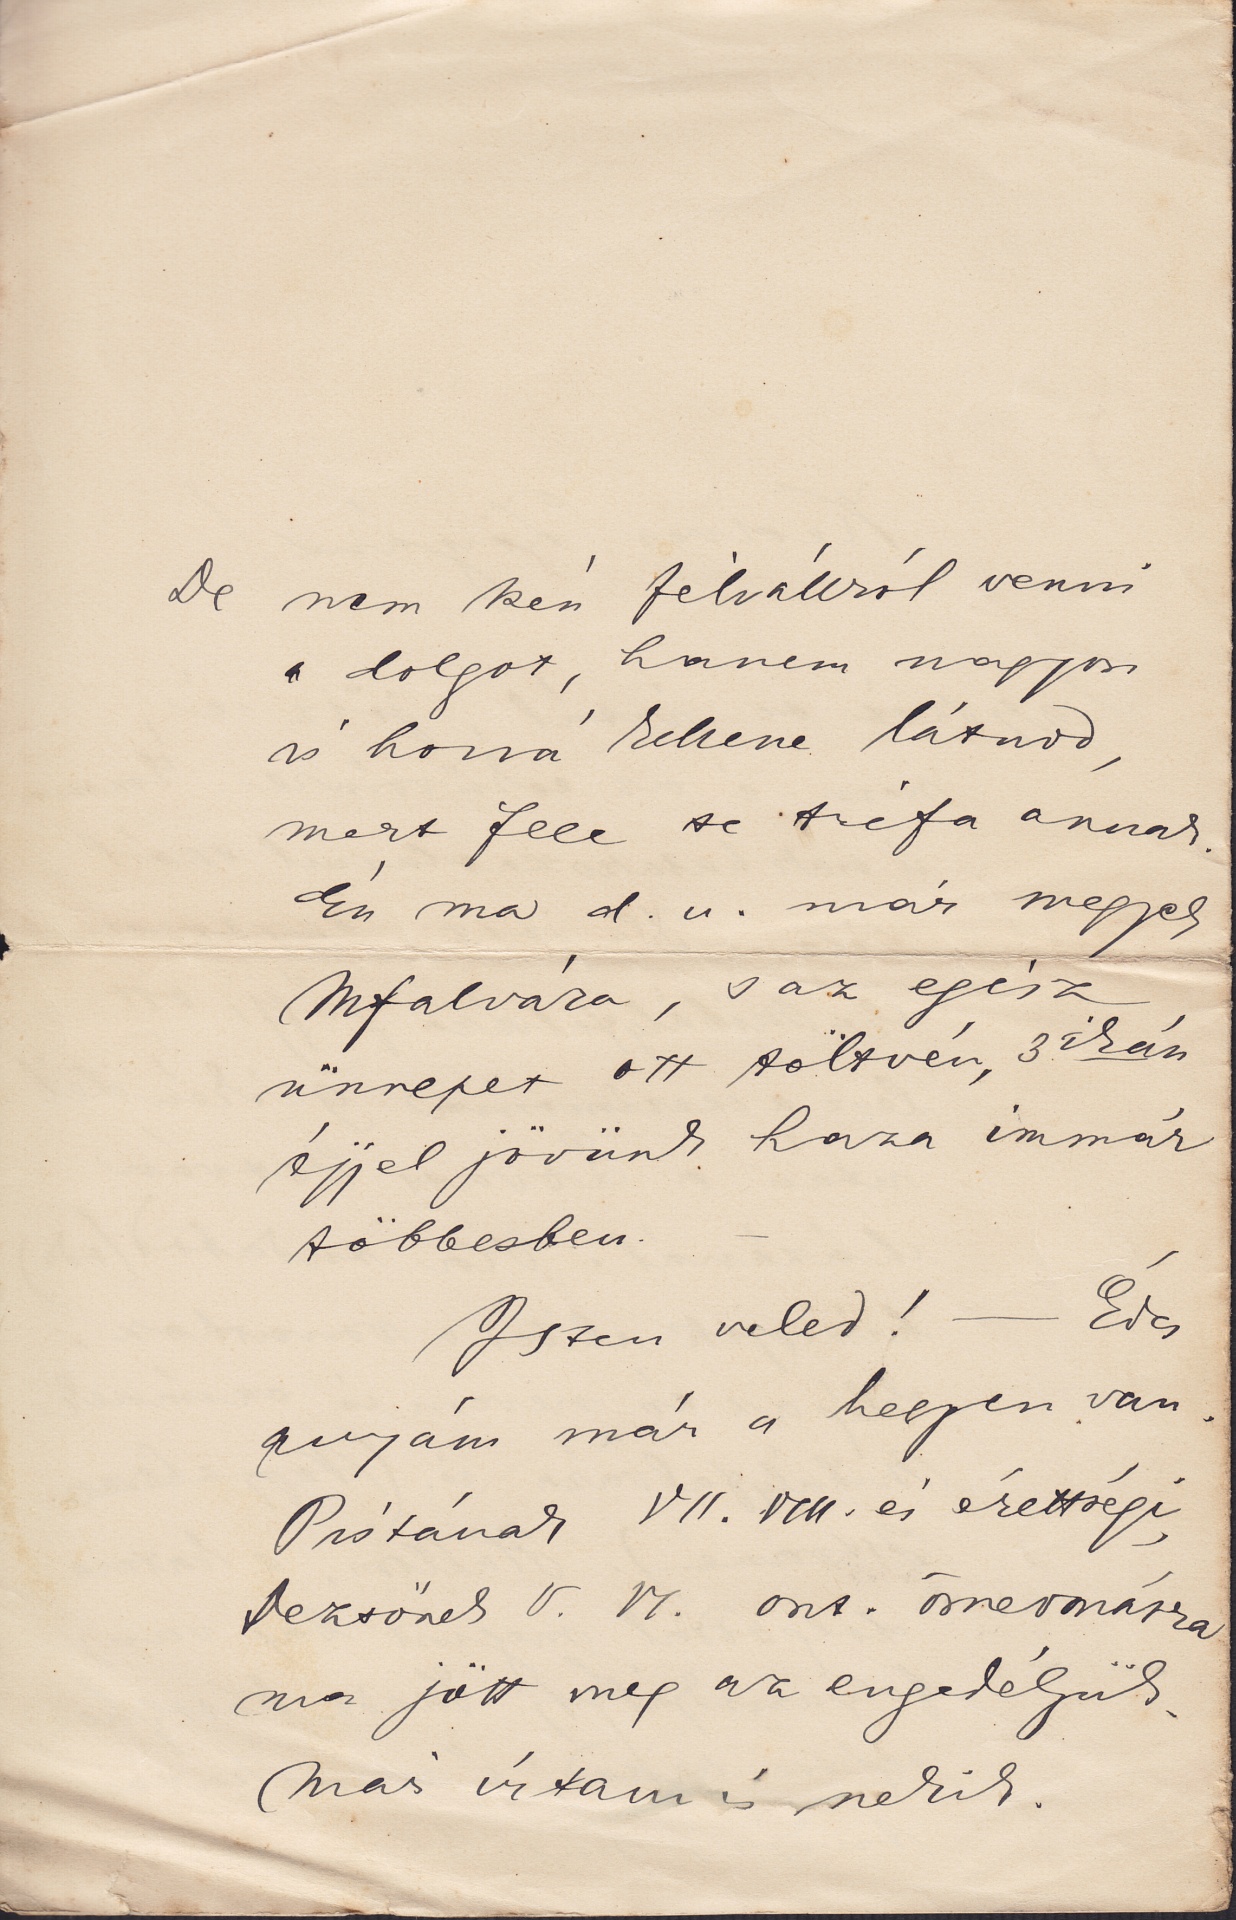 De nem kén félvállról venni
a dolgot, hanem nagyon
is hozzá kellene látnod,
mert fele se tréfa annak.
Én ma d. u. már megyek
Mfalvára, s az egész
ünnepet ott töltvén, 3ikán
éjjel jövünk haza immár
többesben. —
Isten veled! — Édes
anyám már a hegyen van.
Pistának VII. VIII. és érettségi,
Dezsőnek V. VI. oszt. összevonásra
ma jött meg az engedélyük.
Már írtam is nekik.